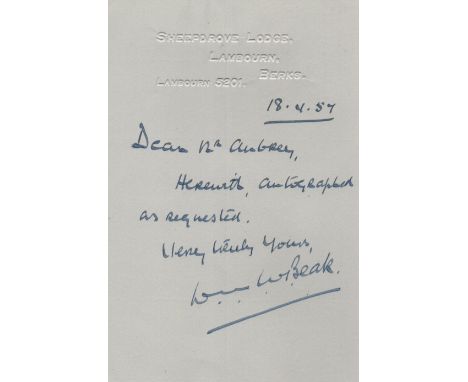 SHEEPDROVE LODGE.
LAMBOURN,
BERKS.
LAMBOURN 5201.
18.4.57
Dear Mr Aubrey,
Herewith, autographed
as requested.
Very truly yours,
Wm W Beak.